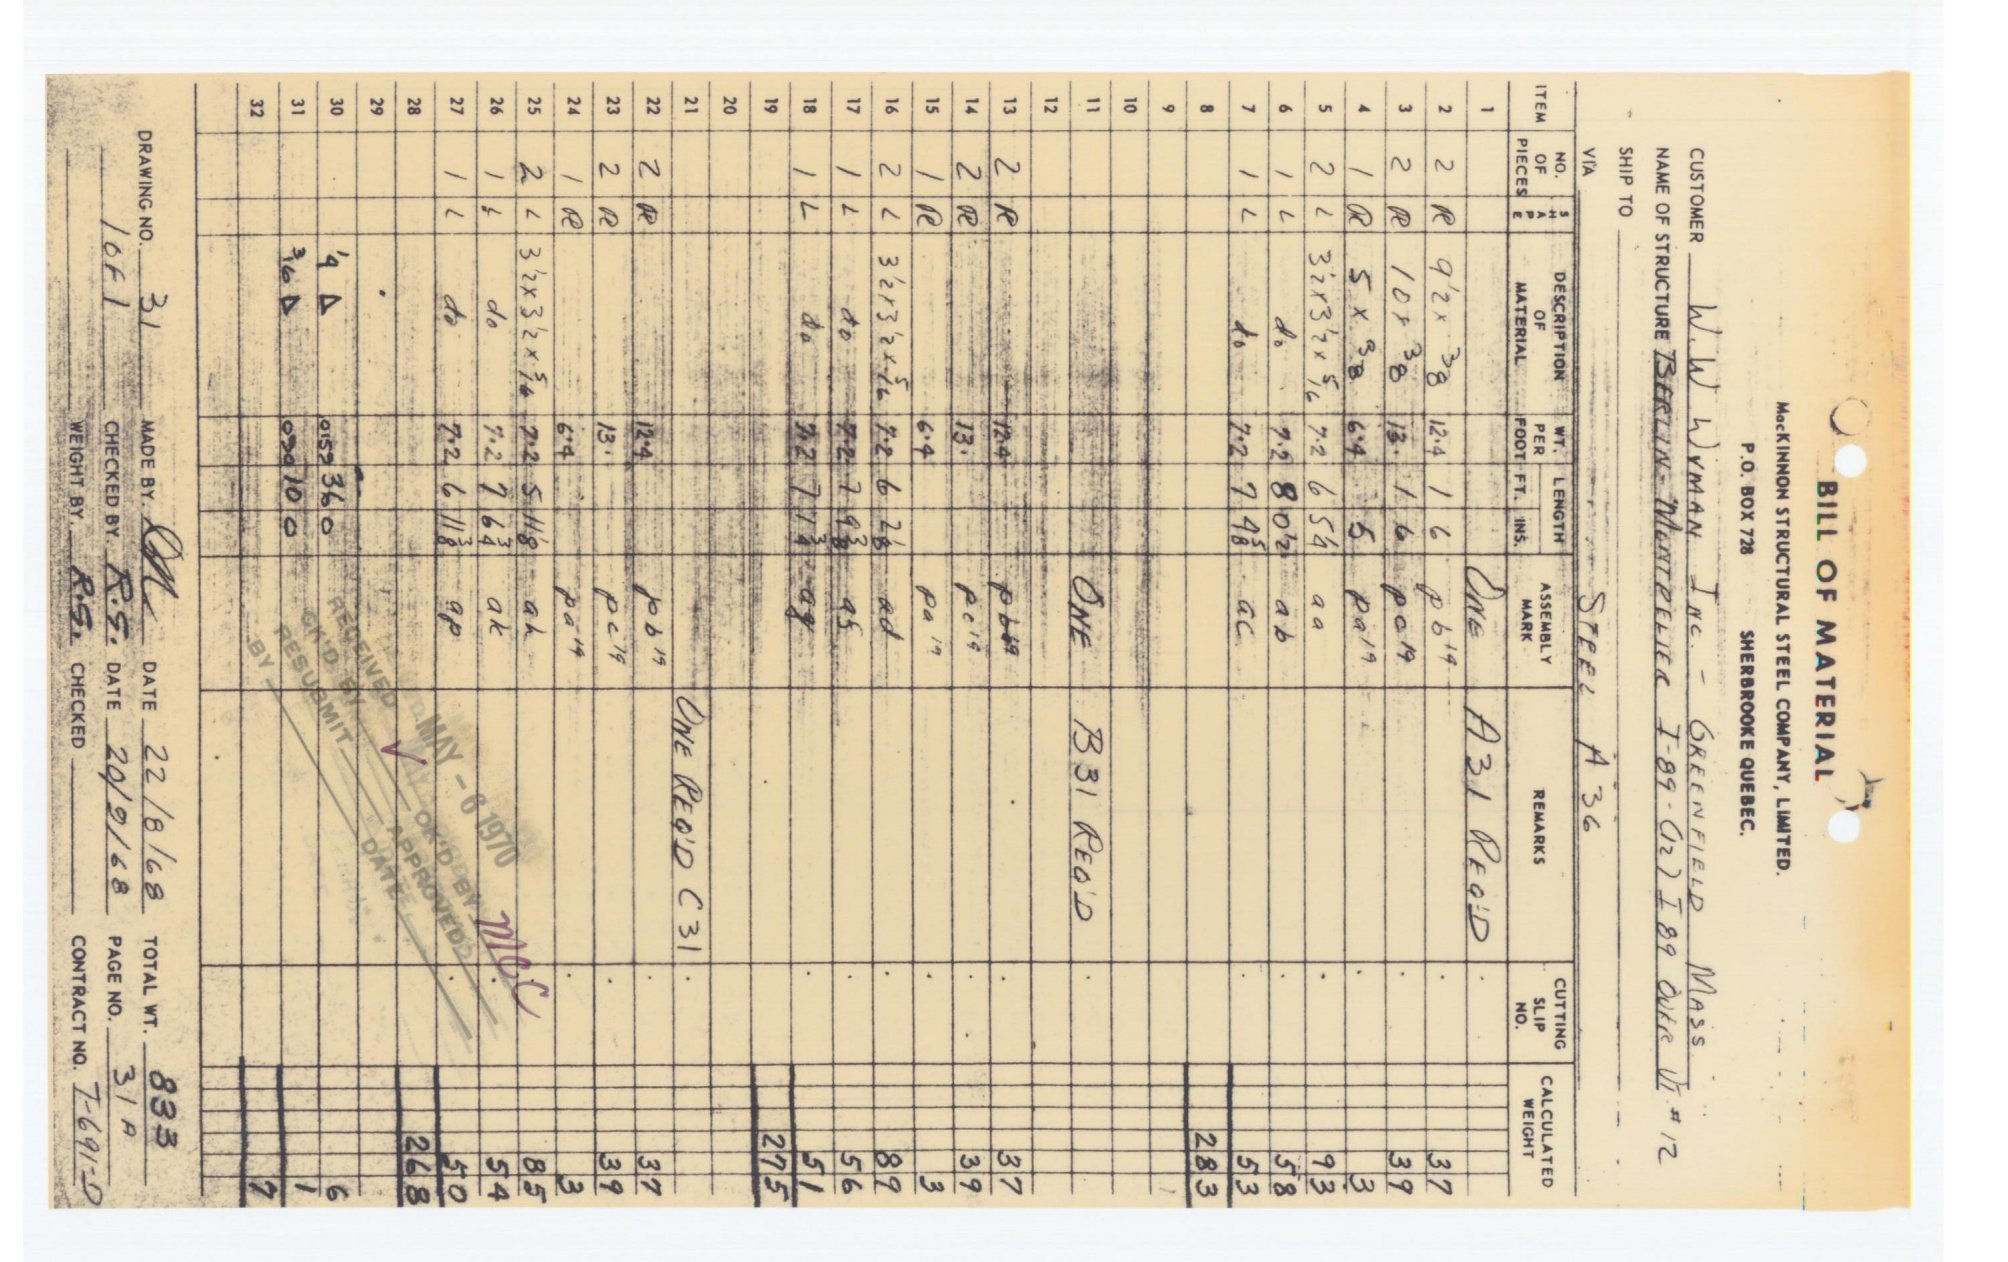 BILL OF MATERIAL
McKINNON STRUCTURAL STEEL COMPANY, LIMITED.
P.O. BOX 728 SHERBROOKE QUEBEC.
CUSTOMER W.W WYMAN INC. - GREENFIELD MASS
NAME OF STRUCTURE BERLIN-MONTPELIER I-89-(12) I 89 OVER VT #12
SHIP TO
VIA STEEL A 36
ITEM NO. OF PIECES SHAPE DESCRIPTION OF MATERIAL WT. PER FOOT LENGTH FT. INS. ASSEMBLY MARK REMARKS CUTTING SLIP NO. CALCULATED WEIGHT
1 ONE A31 REQ'D
2 2 PL 9 1/2 x 3/8 12.4 1 6 pb'19 37
3 2 PL 10 x 3/8 13. 1 6 pc'19 39
4 1 PL 5 x 3/8 6.4 5 pa'19 3
5 2 L 3 1/2 x 3 1/2 x 5/16 7.2 6 5 1/4 aa 93
6 1 L do 7.2 8 0 1/2 ab 58
7 1 L do 7.2 7 4 5/8 ac 53
8 283
9
10
11 ONE B31 REQ'D
12
13 2 PL 12.4 pb'19 37
14 2 PL 13. pc'19 39
15 1 PL 6.4 pa'19 3
16 2 L 3 1/2 x 3 1/2 x 5/16 7.2 6 2 1/8 ad 89
17 1 L do 7.2 7 9 3/8 af 56
18 1 L do 7.2 7 1 3/4 ag 51
19 275
20
21 ONE REQ'D C31
22 2 PL 12.4 pb'19 37
23 2 PL 13. pc'19 39
24 1 PL 6.4 pa'19 3
25 2 L 3 1/2 x 3 1/2 x 5/16 7.2 5 11 1/8 ah 85
26 1 L do 7.2 7 6 3/4 ak 54
27 1 L do 7.2 6 11 3/8 ap 50
28 268
29
30 1/4 △ 0159 36 0 6
31 3/16 △ 090 10 0 1
32 7
RECEIVED MAY - 6 1970
CK'D BY OK'D BY MCC
RESUBMIT APPROVED
BY DATE
DRAWING NO. 31 MADE BY DATE 22/8/68 TOTAL WT. 833
1 OF 1 CHECKED BY R.S. DATE 20/9/68 PAGE NO. 31A
WEIGHT BY R.S. CHECKED CONTRACT NO. T-691-D